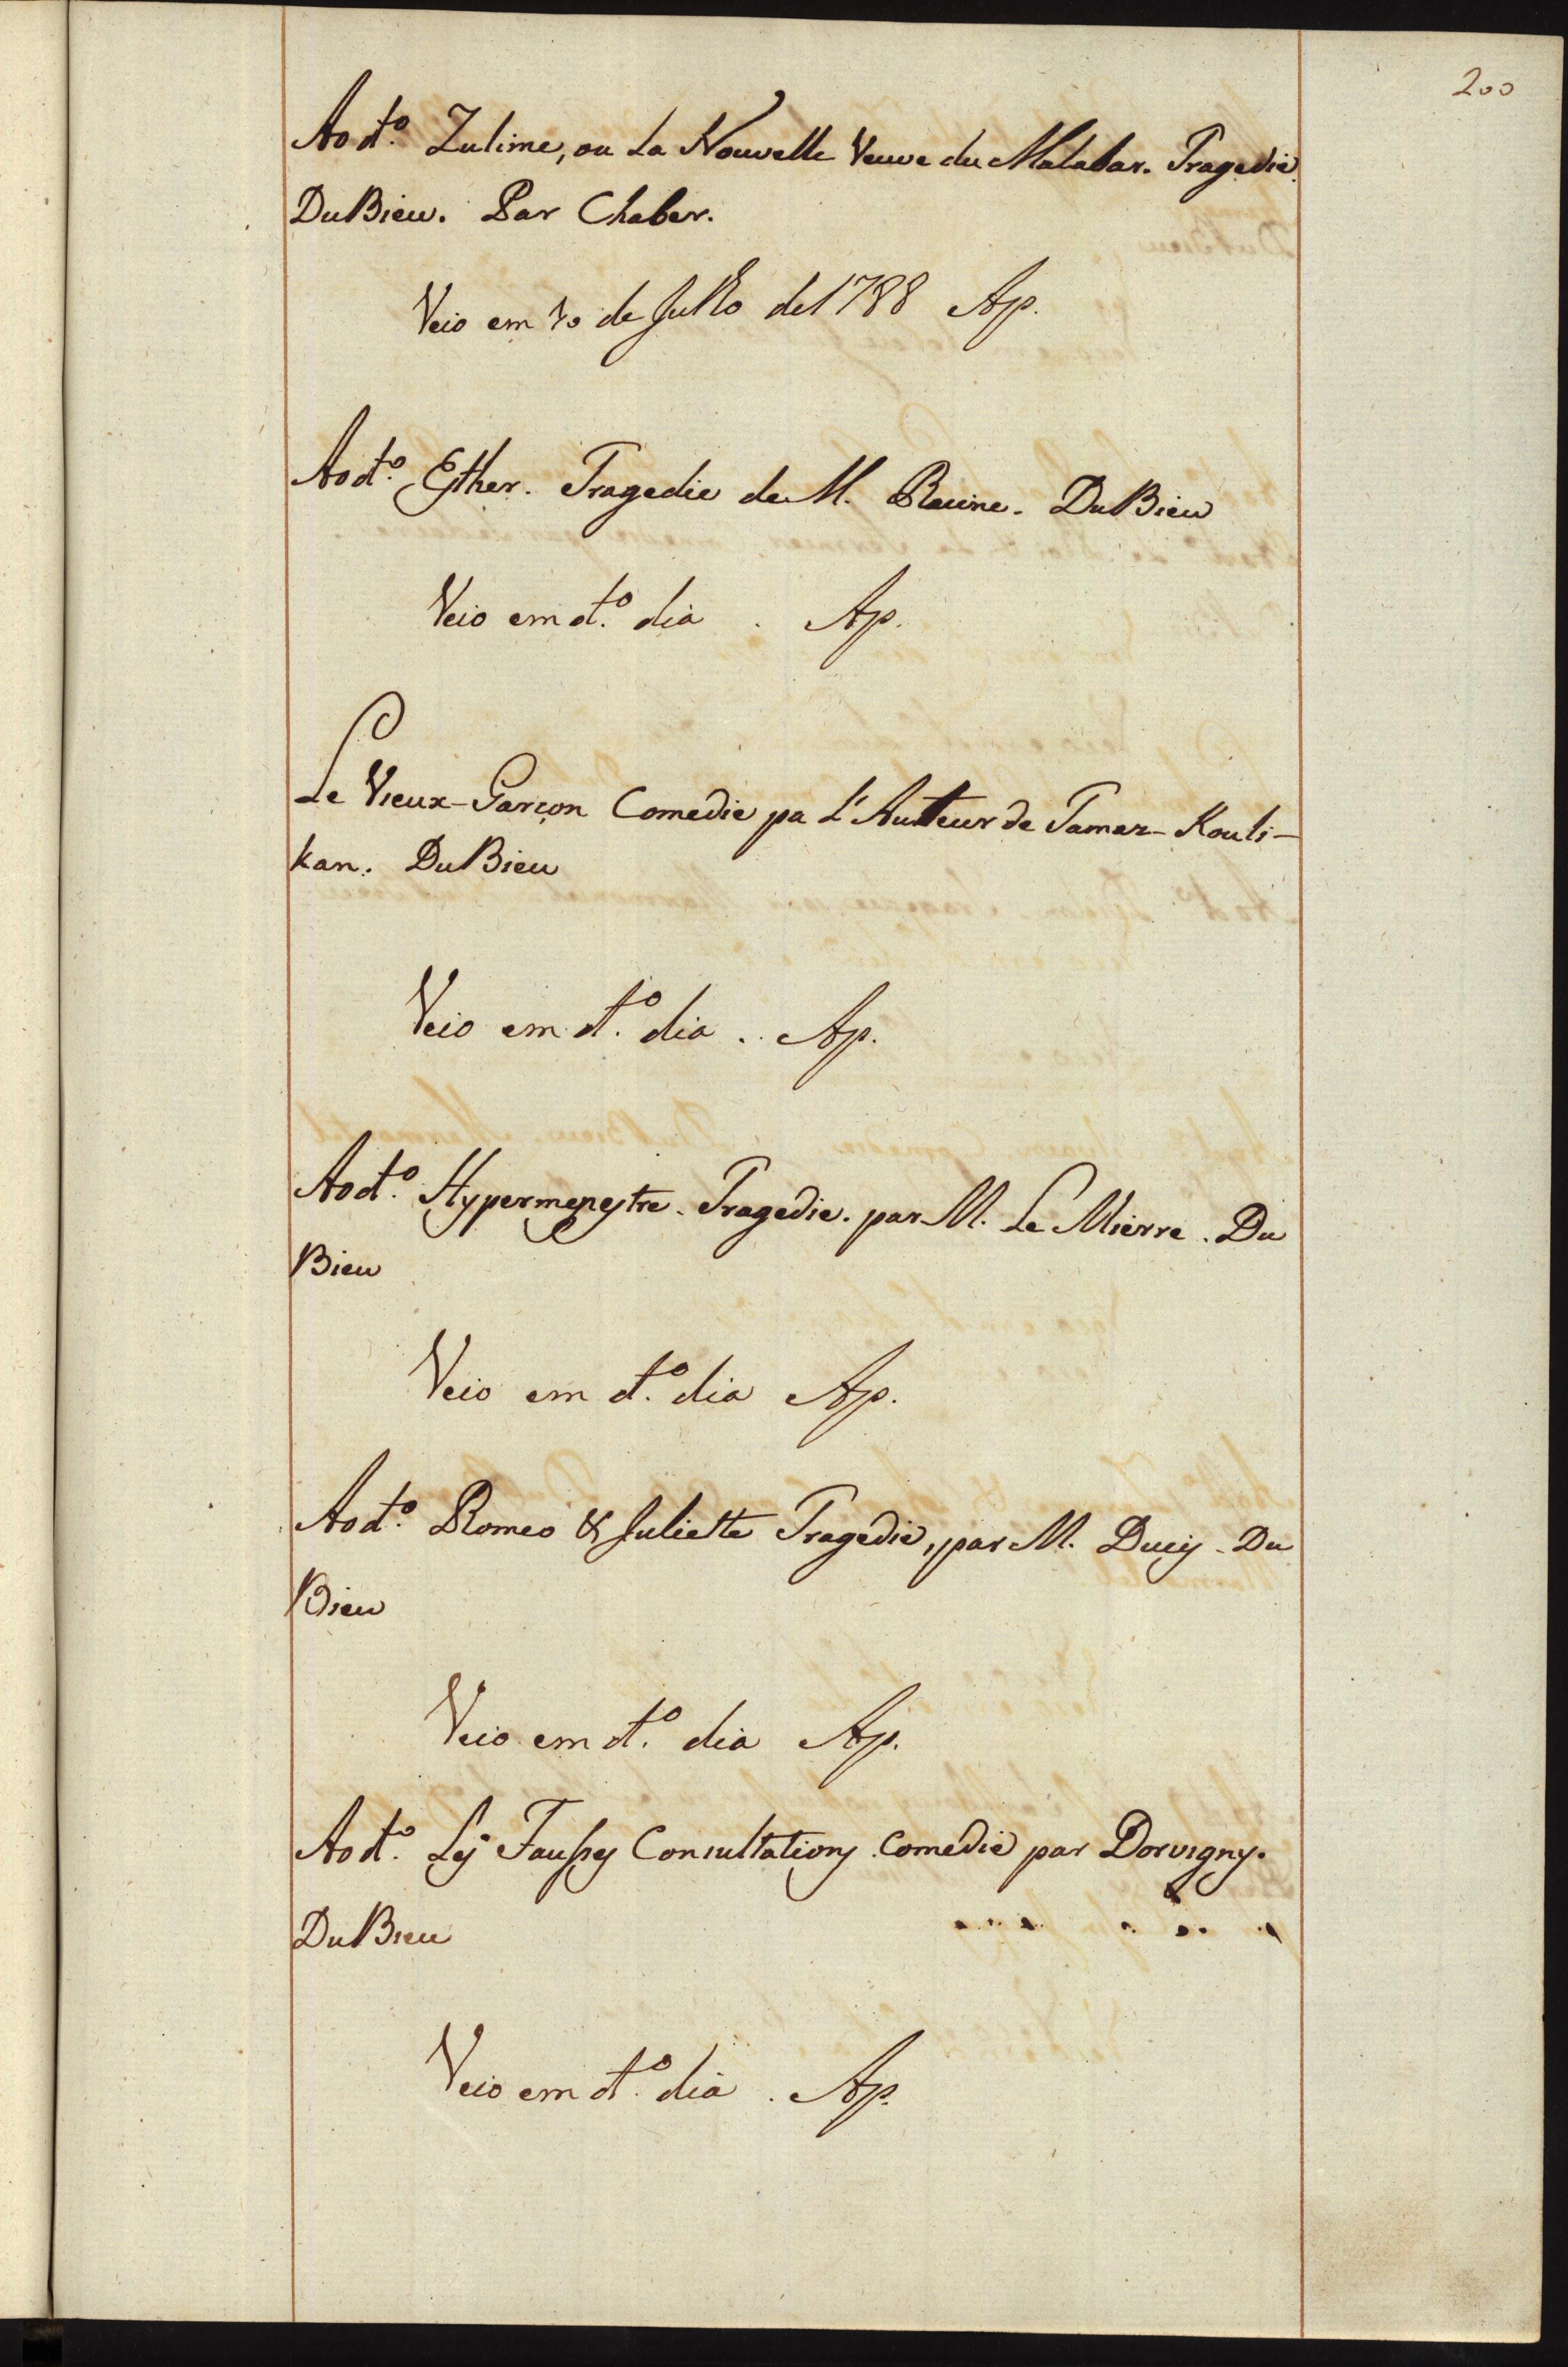 200
Ao d.º Zulime, ou La Nouvelle Veuve du Malabar. Tragedie.
DuBieu. Par Chaber.
Veio em 10 de Julho de 1788 Ap.
Ao d.º Esther. Tragedie de M. Racine. DuBieu
Veio em d.º dia . Ap.
Le Vieux-Garçon Comedie pa L'Auteur de Tamar-Kouli-
kan. DuBieu
Veio em d.º dia . Ap.
Ao d.º Hypermenestre. Tragedie. par M. Le Mierre. Du
Bieu
Veio em d.º dia Ap.
Ao d.º Romeo & Juliette Tragedie, par M. Ducis. Du
Bieu
Veio em d.º dia Ap.
Ao d.º Les Fausses Consultations Comedie par Dorvigny.
DuBieu
Veio em d.º dia . Ap.